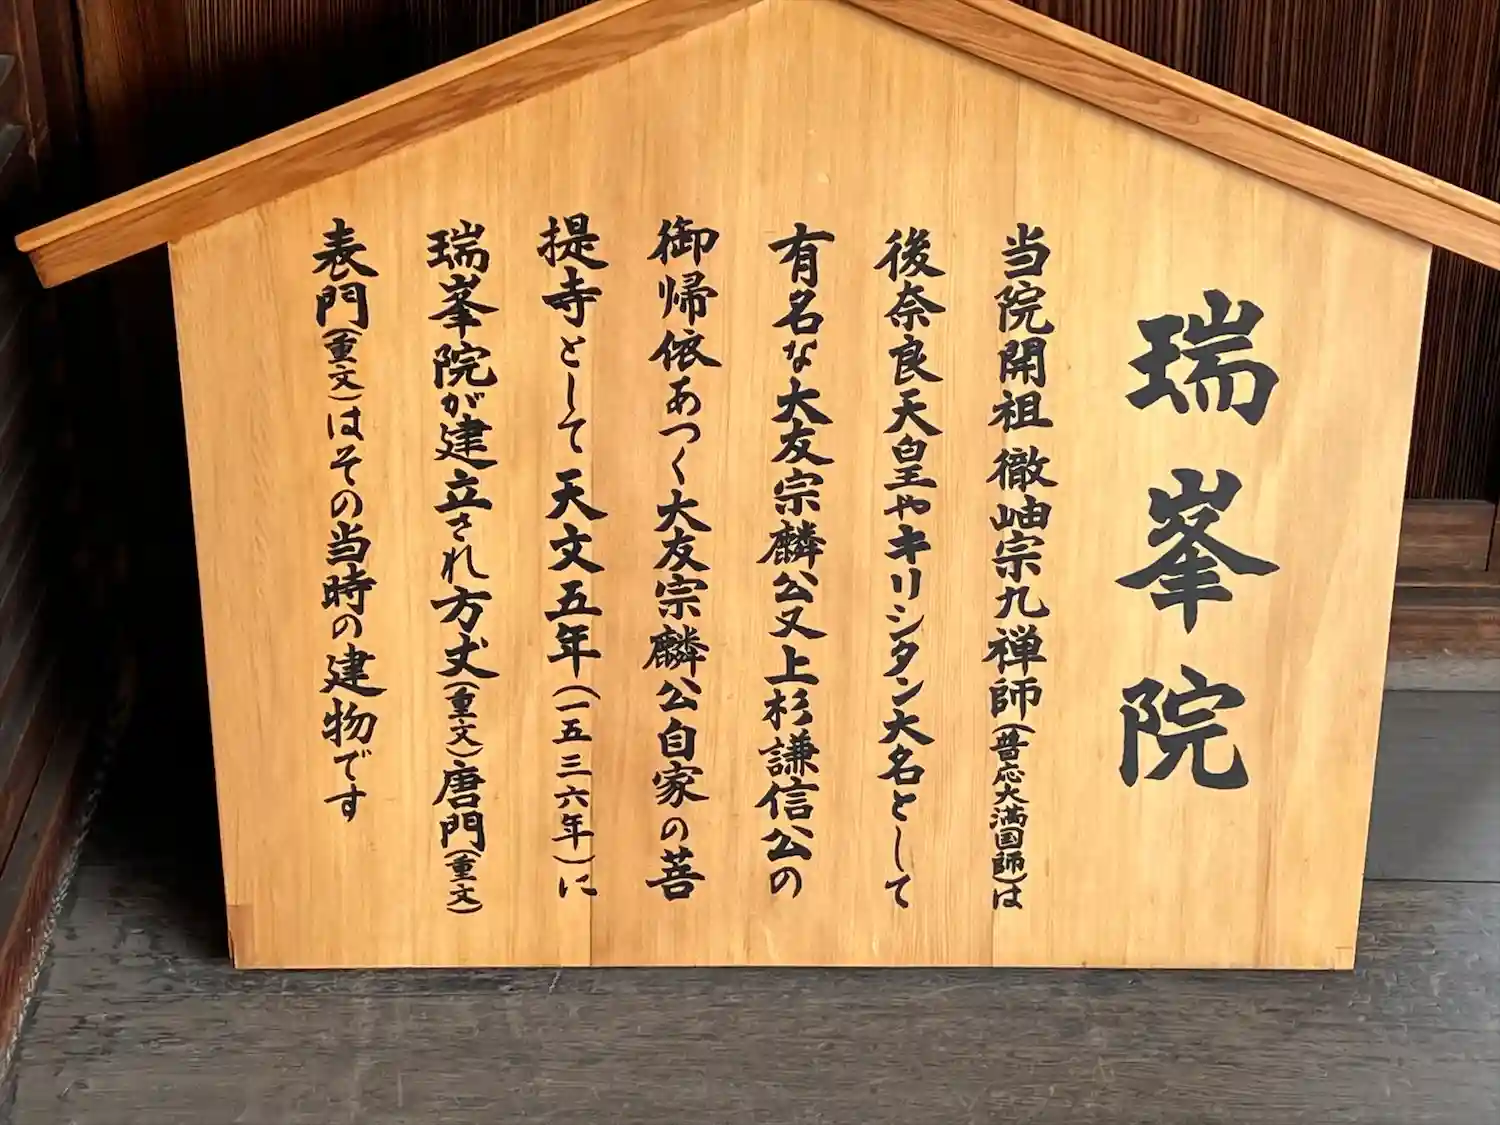 瑞峯院
当院開祖 徹岫宗九禅師(普応大満国師)は
後奈良天皇やキリシタン大名として
有名な大友宗麟公又上杉謙信公の
御帰依あつく大友宗麟公自家の菩
提寺として天文五年(一五三六年)に
瑞峯院が建立され方丈(重文)唐門(重文)
表門(重文)はその当時の建物です